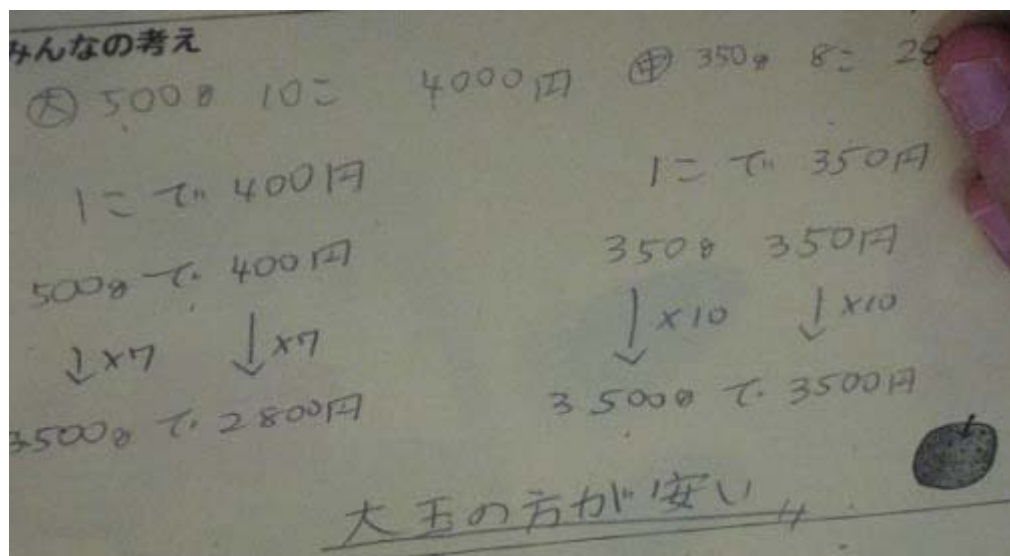 みんなの考え
㊅ 500g 10こ 4000円
1こで 400円
500gで 400円
↓×7 ↓×7
3500gで 2800円
㊥ 350g 8こ 28
1こで 350円
350g 350円
↓×10 ↓×10
3500gで 3500円
大玉の方が安い